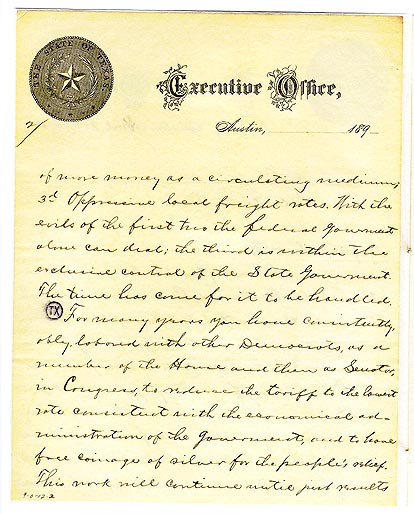 THE STATE OF TEXAS
Executive Office,
Austin, 189
2/
of more money as a circulating medium;
3d Oppressive local freight rates. With the
evils of the first two the federal Government
alone can deal; the third is within the
exclusive control of the State Government.
The time has come for it to be handled.
TX
For many years you have consistently,
ably, labored with other Democrats, as a
member of the House and then as Senator,
in Congress, to reduce the tariff to the lowest
rate consistent with the economical ad-
ministration of the Government, and to have
free coinage of silver for the people's relief.
This work will continue until just results